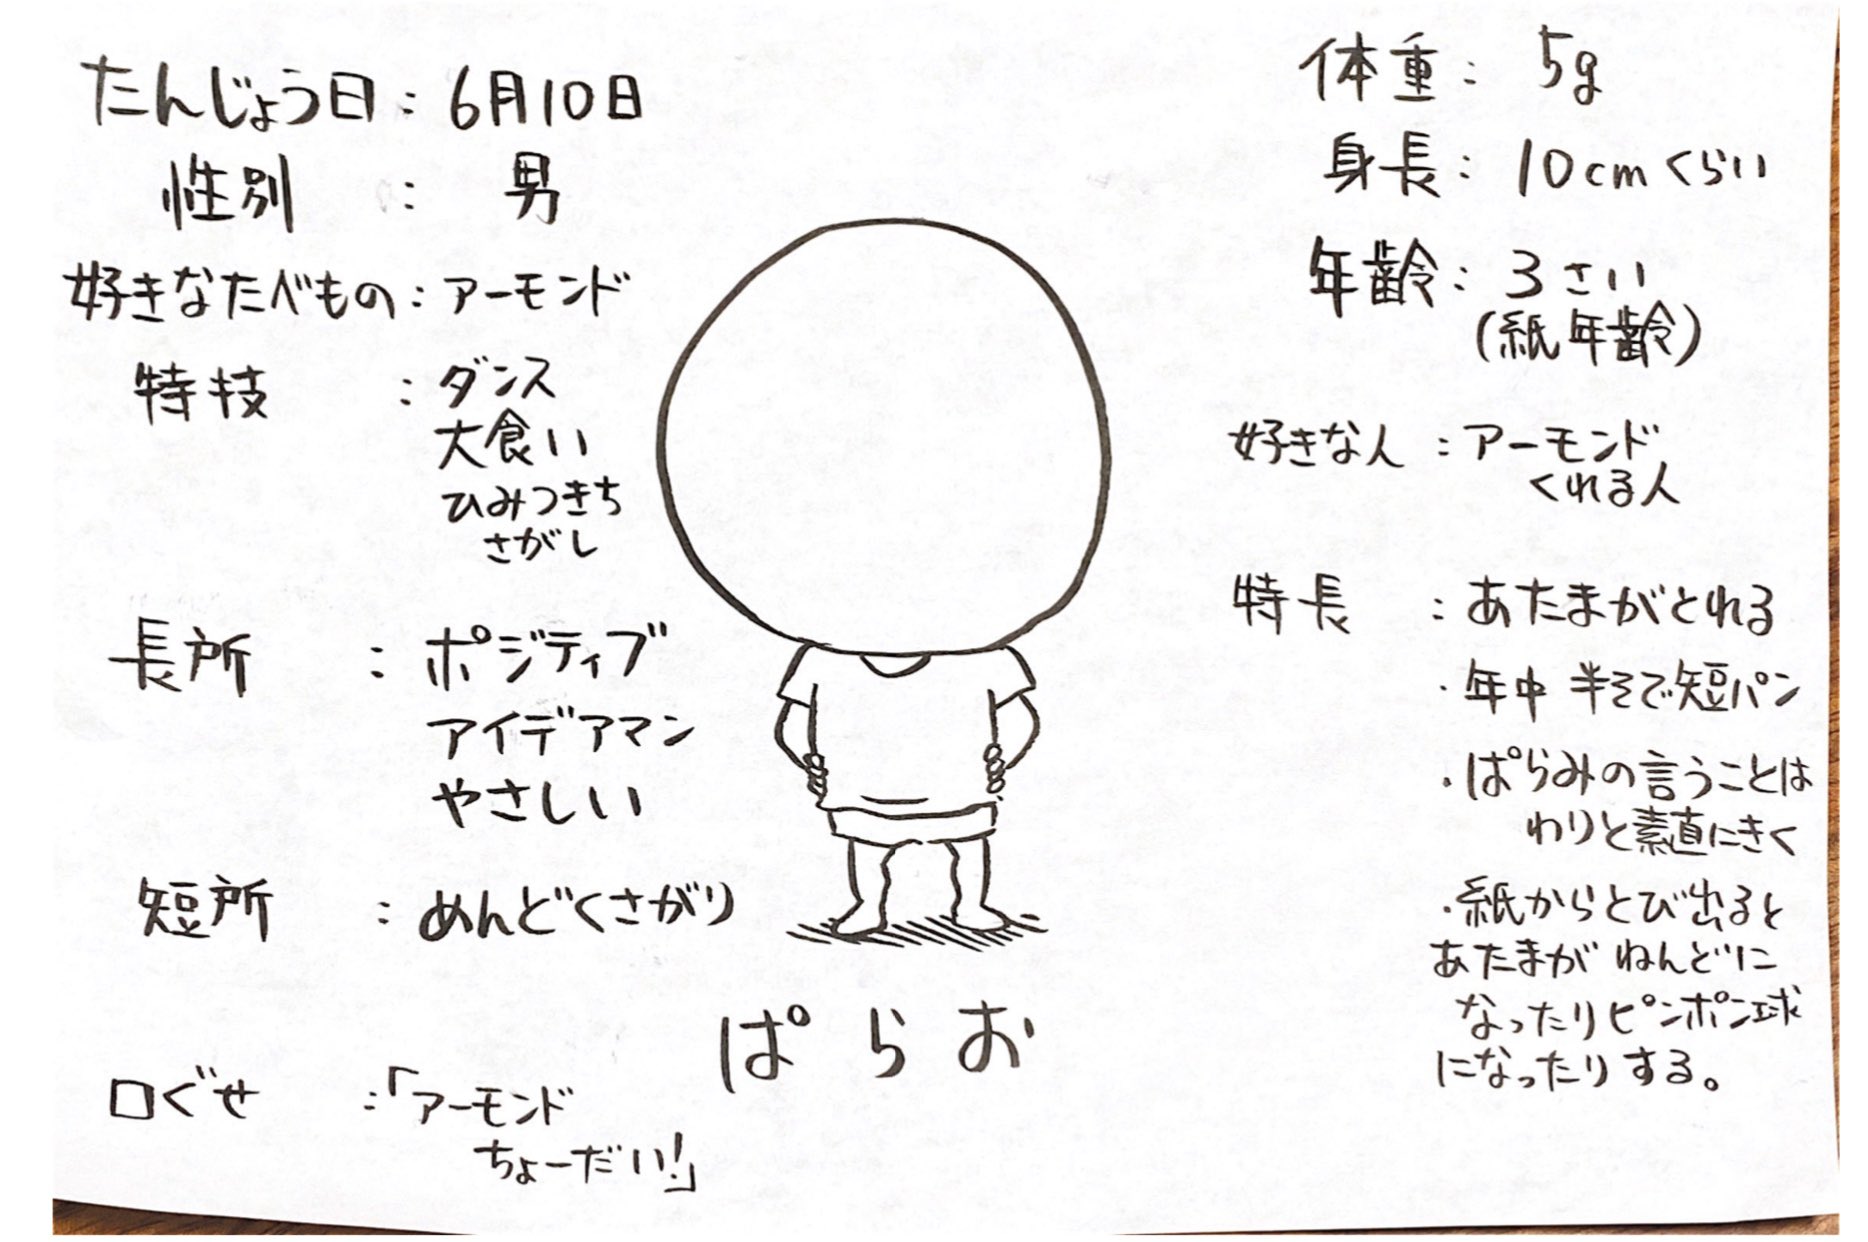 たんじょう日：6月10日
性別：男
好きなたべもの：アーモンド
特技：ダンス
大食い
ひみつきち
さがし
長所：ポジティブ
アイデアマン
やさしい
短所：めんどくさがり
口ぐせ：「アーモンド
ちょーだい！」
ぱらお
体重：5g
身長：10cmくらい
年齢：3さい
(紙年齢)
好きな人：アーモンド
くれる人
特長：あたまがとれる
・年中半そで短パン
・ぱらみの言うことは
わりと素直にきく
・紙からとび出ると
あたまがねんどに
なったりピンポン球
になったりする。